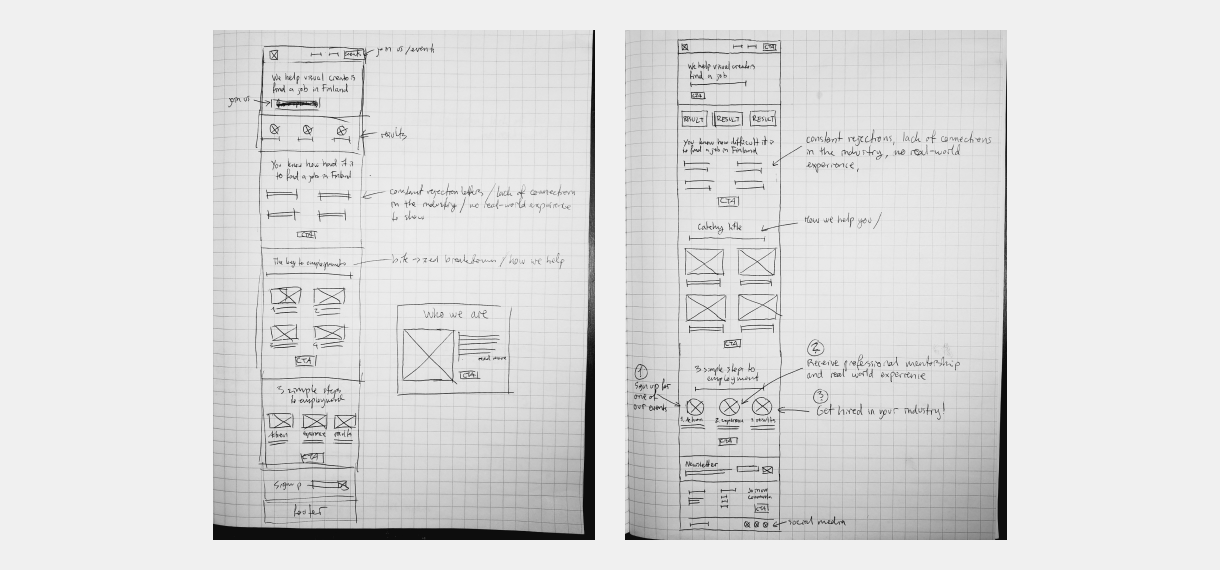 join us / events
We help visual creators
find a job in Finland
join us
results
You know how hard it is
to find a job in Finland
constant rejection letters / lack of connections
in the industry / no real-world experience
to show
CTA
The key to employment
bite-sized breakdown / how we help
1
2
3
4
CTA
Who we are
read more
CTA
3 simple steps
to employment
results
CTA
Sign up
footer
CTA
We help visual creators
find a job
CTA
RESULT
RESULT
RESULT
You know how difficult it is
to find a job in Finland
constant rejections, lack of connections
in the industry, no real-world
experience,
CTA
Catchy title
How we help you /
CTA
3 simple steps to
employment
1
Sign up for
one of
our events
2
Receive professional mentorship
and real world experience
3
Get hired in your industry!
2. experience
3. results
CTA
Newsletter
CTA
social media